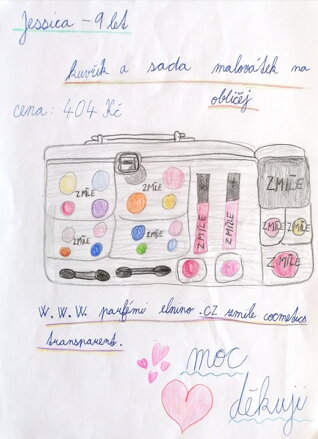 Jessica - 9 let
kuvřík a sada malovátek na
obličej
cena: 404 Kč
ZMILE
ZMILE
ZMILE
ZMILE
ZMILE
ZMILE
ZMILE
ZMILE
ZMILE
ZMILE
W.W.W. parfémi elnino .CZ zmile cocmetics
transparent.
moc
děkuji